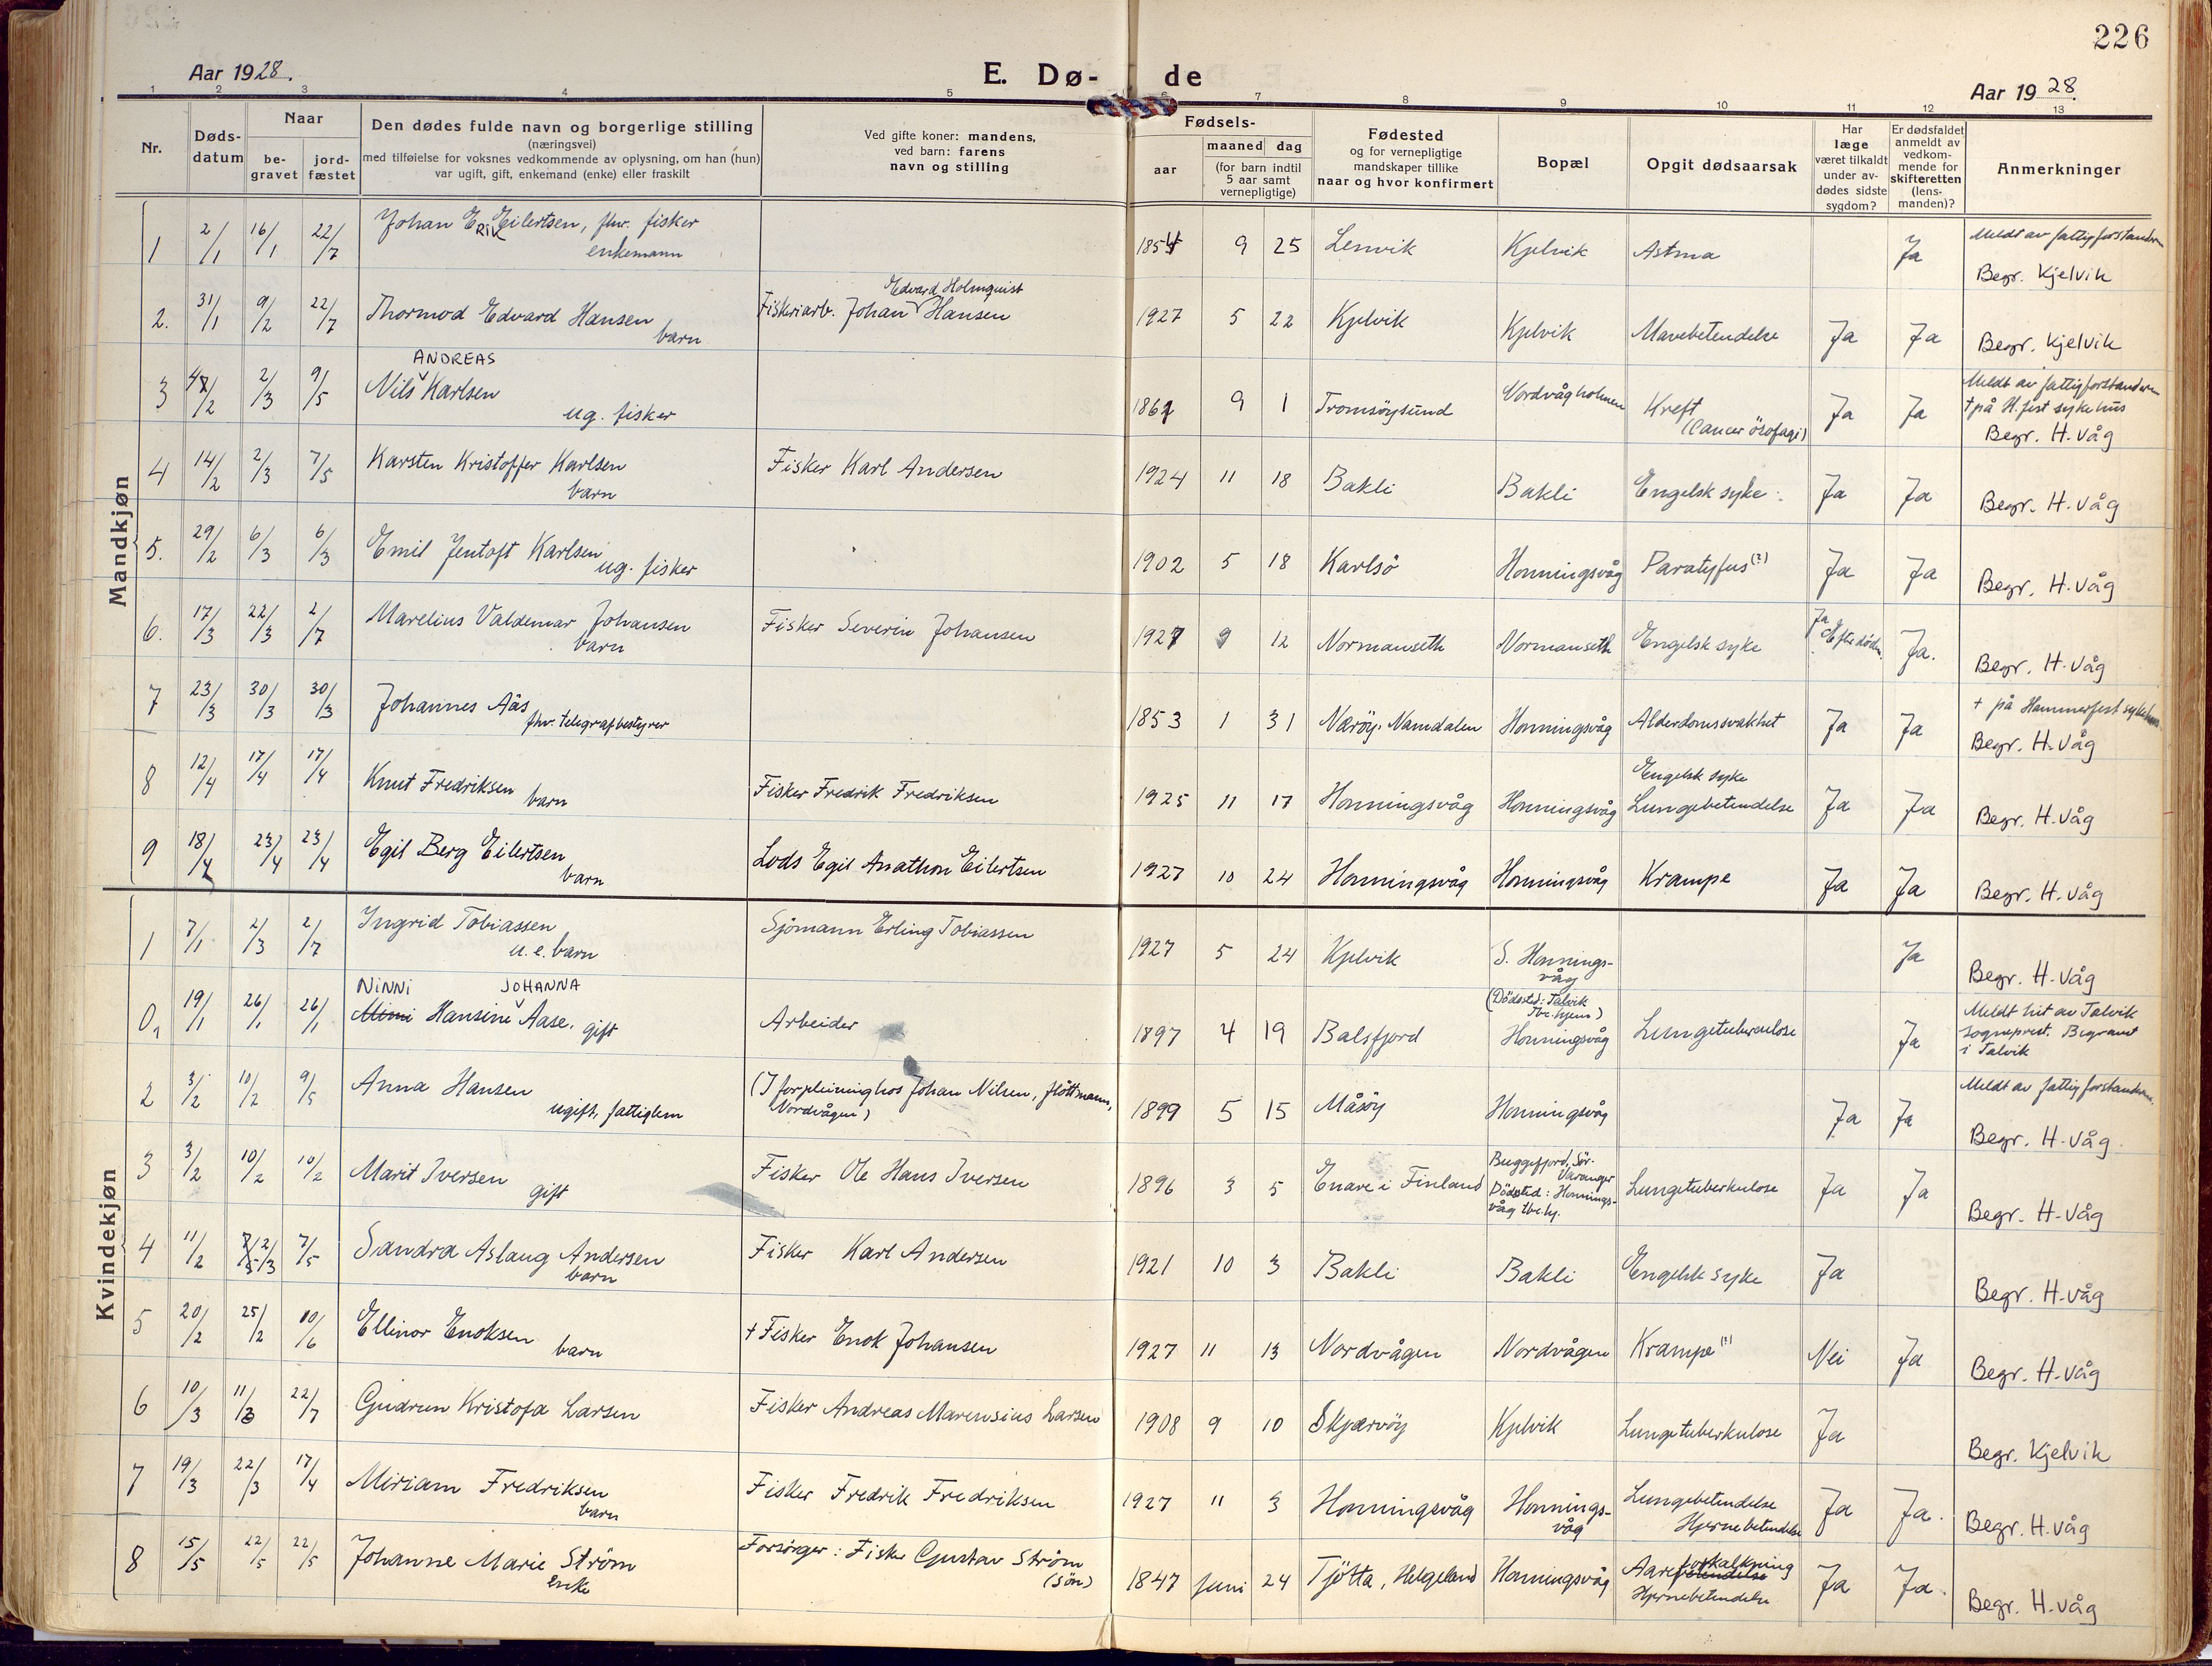 226
Aar 1928.
E. Dø- de
Aar 1928.
1 2 3 4 5 6 7 8 9 10 11 12 13
Nr.
Døds-
datum
Naar
be-
gravet
jord-
fæstet
Den dødes fulde navn og borgerlige stilling
(næringsvei)
med tilføielse for voksnes vedkommende av oplysning, om han (hun)
var ugift, gift, enkemand (enke) eller fraskilt
Ved gifte koner: mandens,
ved barn: farens
navn og stilling
Fødsels-
aar
maaned dag
(for barn indtil
5 aar samt
vernepligtige)
Fødested
og for vernepligtige
mandskaper tillike
naar og hvor konfirmert
Bopæl
Opgit dødsaarsak
Har
læge
været tilkaldt
under av-
dødes sidste
sygdom?
Er dødsfaldet
anmeldt av
vedkom-
mende for
skifteretten
(lens-
manden)?
Anmerkninger
Mandkjøn
1 2/1 16/1 22/7 Johan ERIK Eilertsen, fhv. fisker
enkemann
1854 9 25 Lenvik Kjelvik Astma Ja Meldt av fattigforstanderen
Begr. Kjelvik
2. 31/1 9/2 22/7 Thormod Edvard Hansen
barn
Edvard Holmquist
Fiskeriarb. Johan Hansen 1927 5 22 Kjelvik Kjelvik Mavebetendelse Ja Ja Begr. Kjelvik
ANDREAS
3 2/3 9/5 Nils Karlsen
ug. fisker
9 1 Tromsöysund Nordvågholmen Kreft
(Cancer ösofagi) Ja Ja Meldt av fattigforstanderen
† på H.fest sykehus
Begr. H. Våg
4 14/2 2/3 7/5 Karsten Kristoffer Karlsen
barn
Fisker Karl Andersen 1924 11 18 Bakli Bakli Engelsk syke Ja Ja Begr. H. Våg
5. 29/2 6/3 6/3 Emil Jentoft Karlsen
ug. fisker
1902 5 18 Karlsö Honningsvåg Paratyfus (?) Ja Ja Begr. H. Våg
6. 17/3 22/3 2/7 Marelius Valdemar Johansen
barn
Fisker Severin Johansen 1927 9 12 Normanseth Normanseth Engelsk syke Ja
Efter döden. Ja. Begr. H. Våg
7 23/3 30/3 30/3 Johannes Aås
fhv. telegrafbestyrer
1853 1 31 Næröy, Namdalen Honningsvåg Alderdomssvakhet Ja Ja † på Hammerfest sykehus
Begr. H. Våg
8 12/4 17/4 17/4 Knut Fredriksen
barn
Fisker Fredrik Fredriksen 1925 11 17 Honningsvåg Honningsvåg Engelsk syke
Lungebetendelse Ja Ja Begr. H. Våg
9 18/4 23/4 23/4 Egil Berg Eilertsen
barn
Lods Egil Anathon Eilertsen 1927 10 24 Honningsvåg Honningsvåg Krampe Ja Ja Begr. H. Våg
Kvindekjøn
1 7/1 2/3 2/7 Ingrid Tobiassen
u. e. barn
Sjömann Erling Tobiassen 1927 5 24 Kjelvik S. Honnings-
våg Ja Begr. H. Våg
NINNI JOHANNA
0 19/1 26/1 26/1 Mimi Hansine Aase. gift
Arbeider 1897 4 19 Balsfjord (Dödssted: Talvik
tbc. hjem)
Honningsvåg Lungetuberculose Ja Meldt hit av Talvik
sogneprest. Begravet
i Talvik
2 3/2 10/2 9/5 Anna Hansen
ugift, fattiglem
(I forpleining hos Johan Nilsen, flöttmann,
Nordvågen) 1899 5 15 Måsöy Honningsvåg Ja Ja Meldt av fattigforstanderen.
Begr. H. Våg
3 3/2 10/2 10/2 Marit Iversen
gift
Fisker Ole Hans Iversen 1896 3 5 Enare i Finland Buggefjord, Sör-
Varanger
Dödssted: Honnings-
våg tbc. hj. Lungetuberkulose Ja Ja Begr. H. Våg
4 11/2 2/3 7/5 Sandra Aslaug Andersen
barn
Fisker Karl Andersen 1921 10 3 Bakli Bakli Engelsk syke Ja Begr. H. Våg
5 20/2 25/2 10/6 Ellinor Enoksen
barn
† Fisker Enok Johansen 1927 11 13 Nordvågen Nordvågen Krampe (?) Nei Ja Begr. H. Våg
6 10/3 11/3 22/7 Gudrun Kristofa Larsen
Fisker Andreas Marensius Larsen 1908 9 10 Skjærvöy Kjelvik Lungetuberkulose Ja Begr. Kjelvik
7 19/3 22/3 17/4 Miriam Fredriksen
barn
Fisker Fredrik Fredriksen 1927 11 3 Honningsvåg Honnings-
våg Lungebetendelse
Hjernebetendelse Ja Ja. Begr. H. Våg
8 15/5 22/5 22/5 Johanne Marie Ström
Enke
Forsörger: Fisker Gustav Ström
(sön) 1847 juni 24 Tjötta, Helgeland Honningsvåg Aareforkalkning
betendelse
Hjernebetendelse Ja Ja. Begr. H. Våg